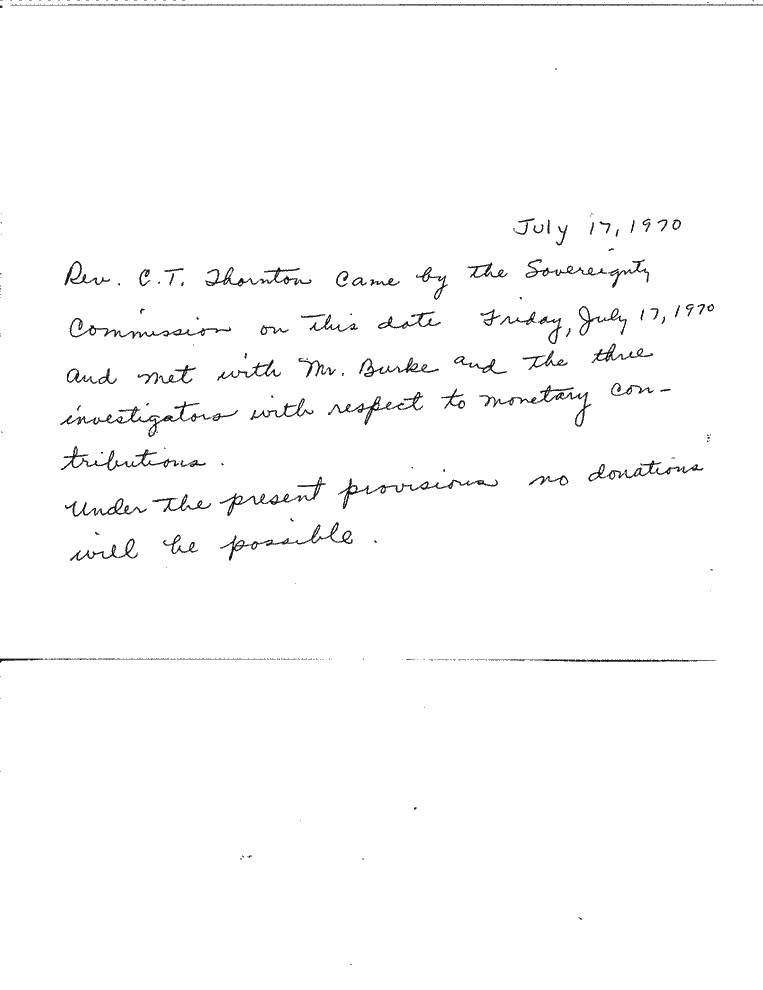 July 17, 1970
Rev. C.T. Thornton came by the Sovereignty
Commission on this date Friday, July 17, 1970
and met with Mr. Burke and the three
investigators with respect to monetary con-
tributions.
Under the present provisions no donations
will be possible.